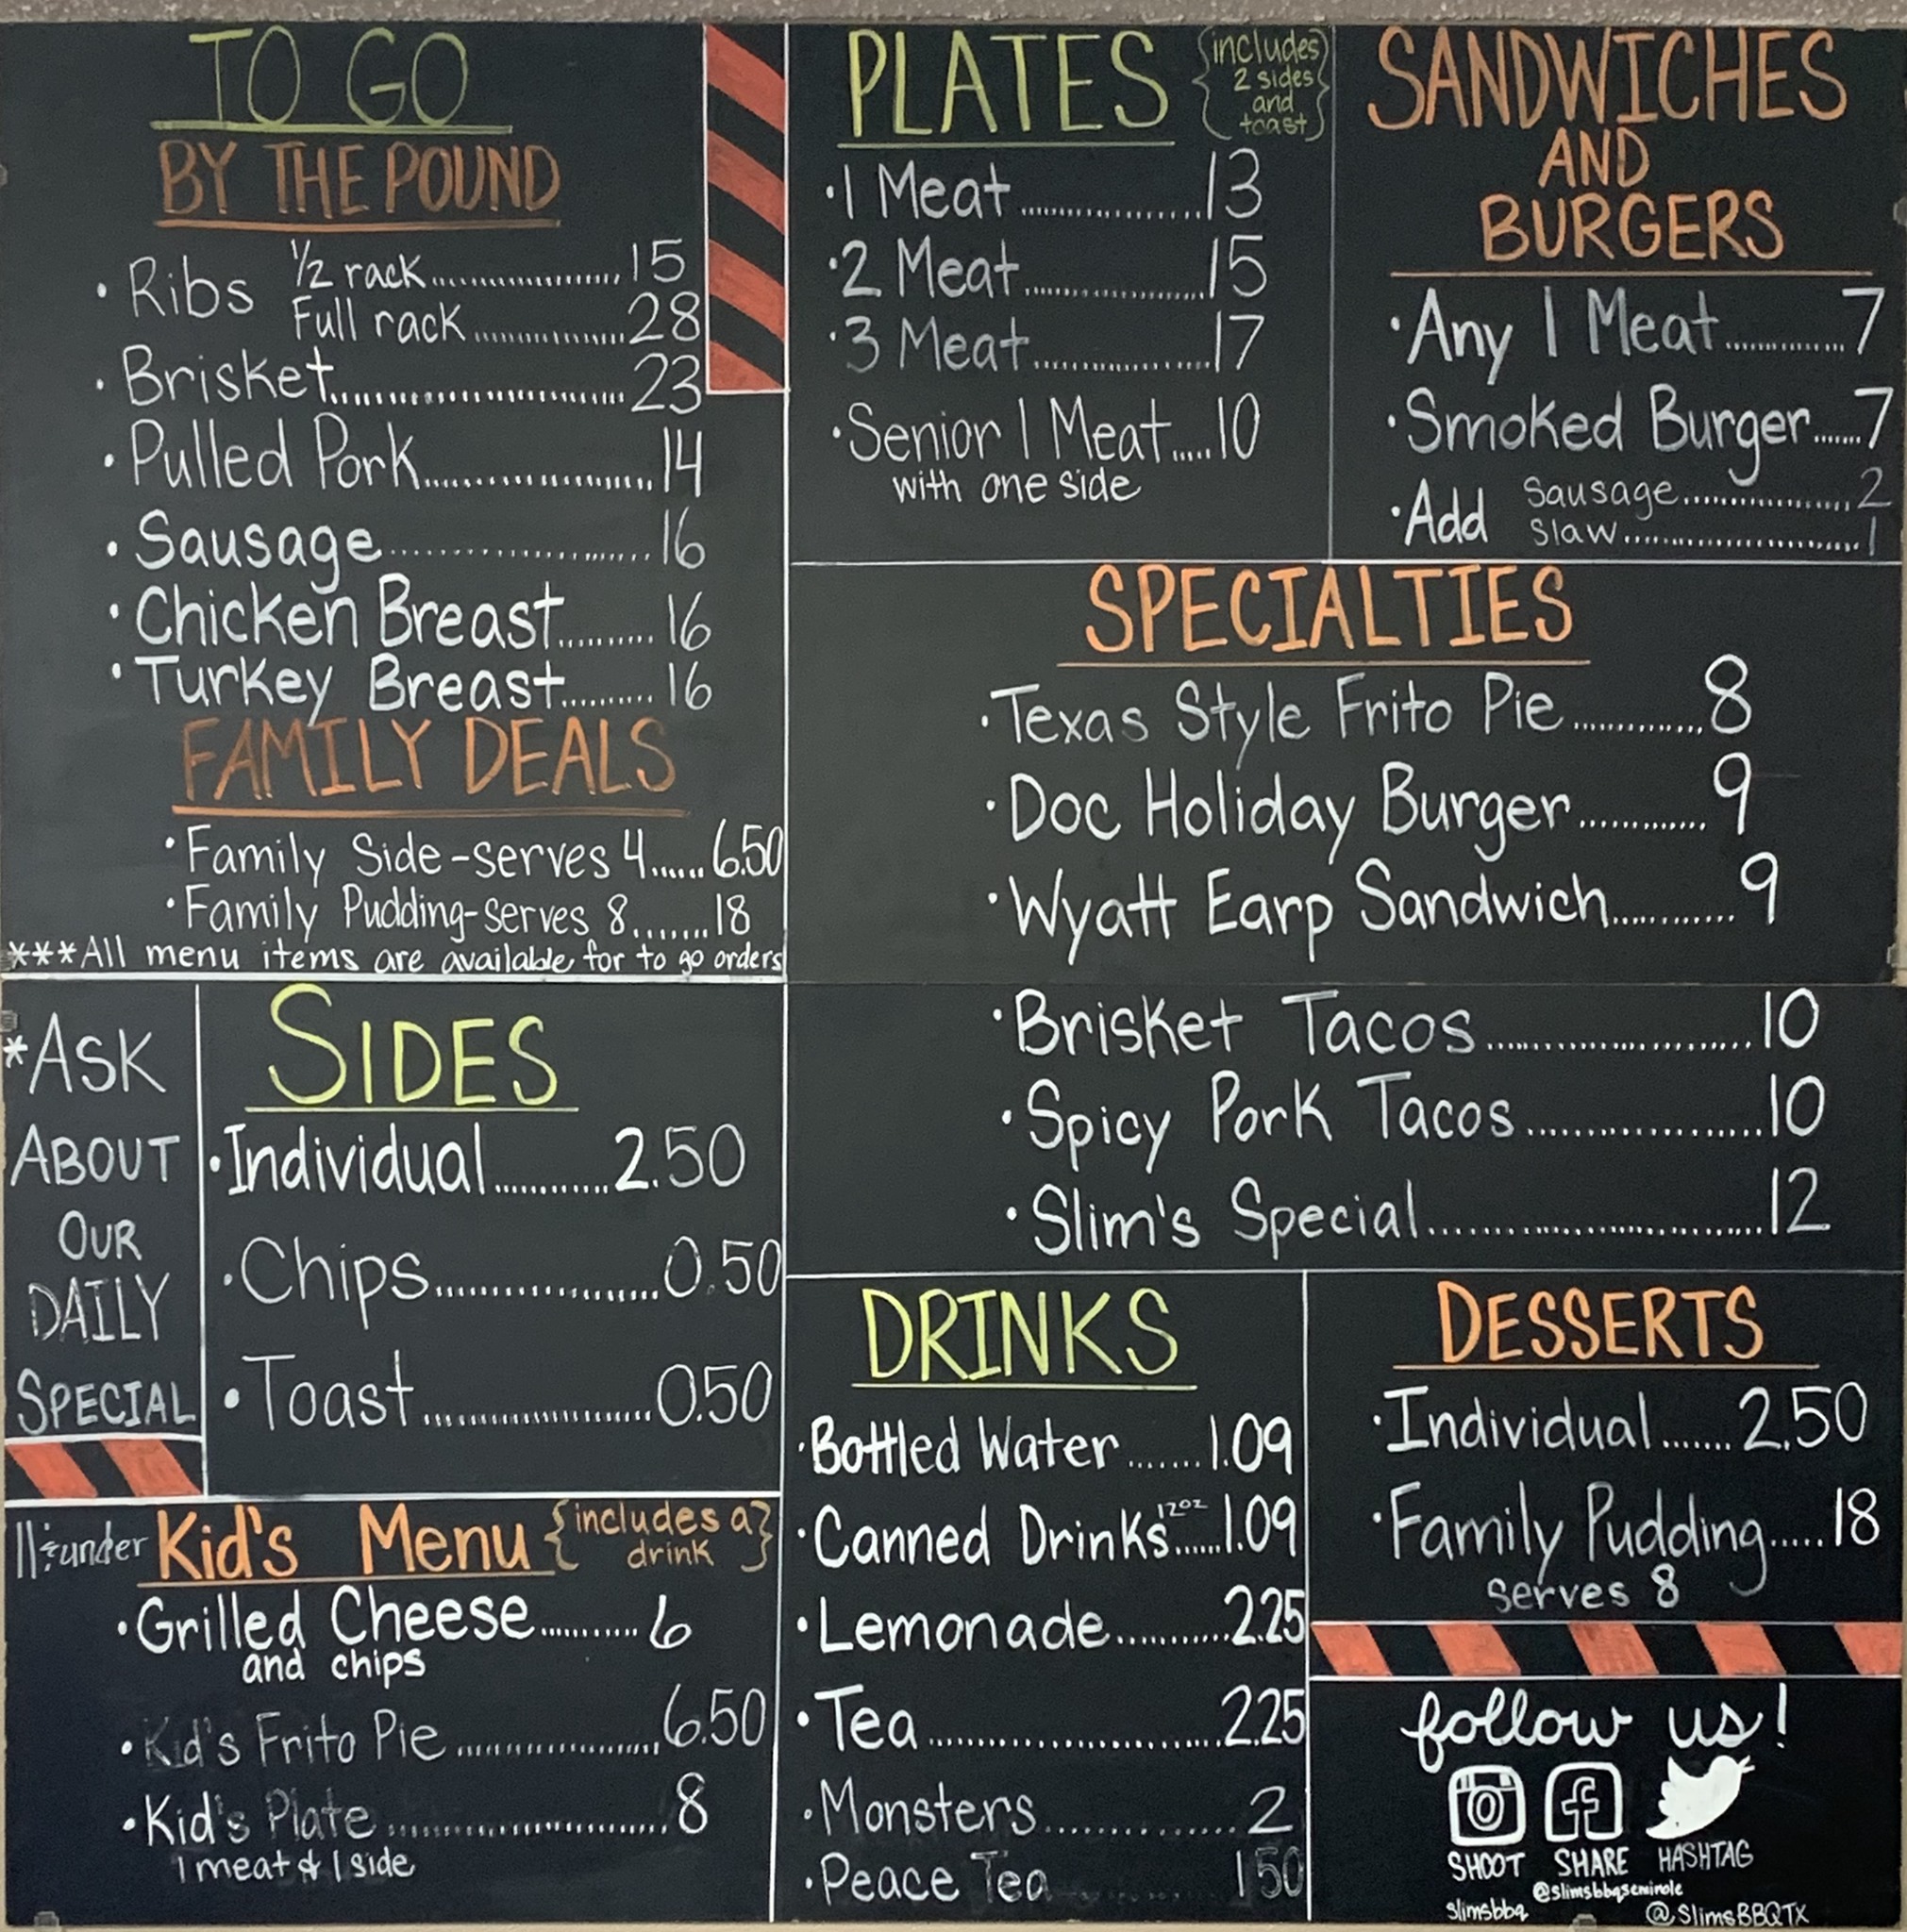 TO GO
BY THE POUND
• Ribs ½ rack..................15
Full rack..............28
• Brisket..............................23
• Pulled Pork......................14
• Sausage........................16
• Chicken Breast..........16
• Turkey Breast.........16
FAMILY DEALS
• Family Side-serves 4......6.50
• Family Pudding-serves 8........18
***All menu items are available for to go orders
PLATES {includes 2 sides and toast}
• 1 Meat................13
• 2 Meat................15
• 3 Meat................17
• Senior 1 Meat.....10
with one side
SANDWICHES
AND
BURGERS
• Any 1 Meat............7
• Smoked Burger......7
• Add Sausage................2
Slaw......................1
SPECIALTIES
• Texas Style Frito Pie............8
• Doc Holiday Burger............9
• Wyatt Earp Sandwich...........9
• Brisket Tacos......................10
• Spicy Pork Tacos..................10
• Slim's Special..........................12
*ASK
ABOUT
OUR
DAILY
SPECIAL
SIDES
• Individual...........2.50
• Chips....................0.50
• Toast......................0.50
11 & under Kid's Menu {includes a drink}
• Grilled Cheese..........6
and chips
• Kid's Frito Pie....................6.50
• Kid's Plate.............................8
1 meat & 1 side
DRINKS
• Bottled Water.......1.09
• Canned Drinks 12oz.....1.09
• Lemonade...........2.25
• Tea........................2.25
• Monsters..............2
• Peace Tea............1 50
DESSERTS
• Individual.......2.50
• Family Pudding.....18
serves 8
follow us!
SHOOT SHARE HASHTAG
@slimsbbqseminole
slimsbbq @SlimsBBQTX